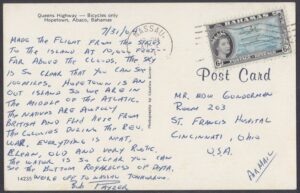 Queens Highway — Bicycles only
Hopetown, Abaco, Bahamas
7/31/64
MADE THE FLIGHT FROM THE STATES
TO THE ISLAND AT 10,000 FEET.
FAR ABOVE THE CLOUDS. THE SKY
IS SO CLEAR THAT YOU CAN SEE
FOR MILES. HOPETOWN IS AN
OUT ISLAND SO WE ARE IN
THE MIDDLE OF THE ATLATIC.
THE NATIVES ARE
BRITISH AND FLED HERE FROM
THE COLONIES DURING THE REV.
WAR. EVERYTHING IS NEAT,
CLEAN, OLD AND VERY RUSTIC.
THE WATER IS SO CLEAR YOU CAN
SEE THE BOTTOM REGARDLESS OF DEPTH.
WE'RE OFF TO NASSAU TOMORROW.
BOB
14235
NASSAU
BAHAMAS
6d
Post Card
MR. BOW GUNDERMAN
ROOM 203
ST. FRANCIS HOSPITAL
CINCINNATI, OHIO
U.S.A.
AIR MAIL